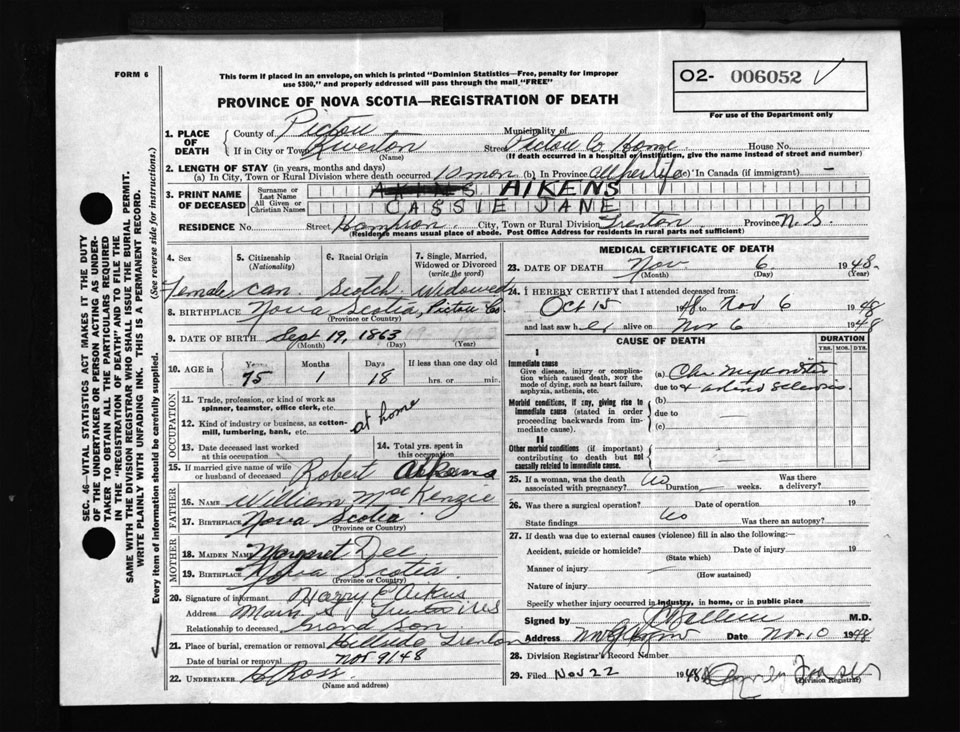 FORM 6
This form if placed in an envelope, on which is printed "Dominion Statistics—Free, penalty for improper
use $300," and properly addressed will pass through the mail "FREE"
O2- 006052
For use of the Department only
PROVINCE OF NOVA SCOTIA—REGISTRATION OF DEATH
1. PLACE OF DEATH County of Pictou Municipality of
If in City or Town Riverton (Name) Street Pictou Co Home House No.
(If death occurred in a hospital or institution, give the name instead of street and number)
2. LENGTH OF STAY (in years, months and days)
(a) In City, Town or Rural Division where death occurred 10 mon (b) In Province All her life (c) In Canada (if immigrant) —
3. PRINT NAME OF DECEASED Surname or Last Name AIKENS AIKENS
All Given or Christian Names CASSIE JANE
RESIDENCE No. Street City, Town or Rural Division Trenton Province N.S.
(Residence means usual place of abode. Post Office Address for residents in rural parts not sufficient)
4. Sex 5. Citizenship (Nationality) 6. Racial Origin 7. Single, Married, Widowed or Divorced (write the word)
female Can. Scotch Widowed
8. BIRTHPLACE Nova Scotia, Pictou Co
(Province or Country)
9. DATE OF BIRTH Sept 19, 1863
(Month) (Day) (Year)
10. AGE in Years Months Days If less than one day old
75 1 18 hrs. or min.
OCCUPATION
11. Trade, profession, or kind of work as spinner, teamster, office clerk, etc.
12. Kind of industry or business, as cotton-mill, lumbering, bank, etc. at home
13. Date deceased last worked at this occupation
14. Total yrs. spent in this occupation
15. If married give name of wife or husband of deceased Robert Aikens
FATHER
16. NAME William MacKenzie
17. BIRTHPLACE Nova Scotia
(Province or Country)
MOTHER
18. MAIDEN NAME Margaret Dee
19. BIRTHPLACE Nova Scotia
(Province or Country)
20. Signature of informant Harry E Aikens
Address Main St Trenton NS
Relationship to deceased Grand Son
21. Place of burial, cremation or removal Hillside Trenton
Date of burial or removal Nov 9/48
22. UNDERTAKER H Ross
(Name and address)
MEDICAL CERTIFICATE OF DEATH
23. DATE OF DEATH Nov 6 1948
(Month) (Day) (Year)
24. I HEREBY CERTIFY that I attended deceased from:
Oct 15 1948 to Nov 6 1948
and last saw her alive on Nov 6 1948
CAUSE OF DEATH
DURATION
YRS. MOS. DYS.
I
Immediate cause
Give disease, injury or complication which caused death, not the mode of dying, such as heart failure, asphyxia, asthenia, etc.
(a) Chr
due to
Morbid conditions, if any, giving rise to immediate cause (stated in order proceeding backwards from immediate cause).
(b)
due to
(c)
II
Other morbid conditions (if important) contributing to death but not causally related to immediate cause.
25. If a woman, was the death associated with pregnancy? No Duration weeks. Was there a delivery?
26. Was there a surgical operation? Date of operation 19
State findings No Was there an autopsy?
27. If death was due to external causes (violence) fill in also the following:—
Accident, suicide or homicide? Date of injury 19
(State which)
Manner of injury
(How sustained)
Nature of injury
Specify whether injury occurred in industry, in home, or in public place
Signed by M.D.
Address Date Nov. 10 1948
28. Division Registrar's Record Number
29. Filed Nov 22 1948
(Division Registrar)
SEC. 46—VITAL STATISTICS ACT MAKES IT THE DUTY
OF THE UNDERTAKER OR PERSON ACTING AS UNDER-
TAKER TO OBTAIN ALL THE PARTICULARS REQUIRED
IN THE "REGISTRATION OF DEATH" AND TO FILE THE
SAME WITH THE DIVISION REGISTRAR WHO SHALL ISSUE THE BURIAL PERMIT.
WRITE PLAINLY WITH UNFADING INK. THIS IS A PERMANENT RECORD.
Every item of information should be carefully supplied. (See reverse side for instructions.)